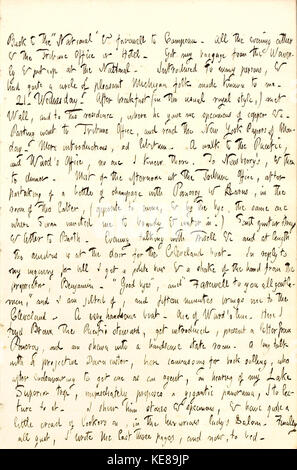 Back to the "National" & farewell to Campeau. All the evening either
@ the Tribune Office or Hotel. Got my baggage from the
& put up at the National. Introduced to many persons, &
had quite a circle of pleasant Michigan folk made known to me.
21. Wednesday. After breakfast (in the usual royal style,) met
Wall, and to his residence, where he gave me specimens of copper &c.
Parting went to Tribune Office, and read the New York Papers of Mon-
day. More introductions, and &c. A walk to the Pacific,
and Ward's Office, no one I knew there. To Newberry's, & then
to dinner. Most of the afternoon at the Tribune Office, after
partaking of a bottle of champagne with Pomeroy & Barns, in the
room of this latter, (opposite to mine, & by the bye the same one
when Swan invited me to brandy & water in.) Sent guitar story
& letter to Barth. Evening talking with &c and at length
the omnibus is at the door for the Cleveland boat. In reply to
my inquiry for bill I got a polite bow & a shake of the hand from the
proprietor, Benjamin. "Good bye", and "Farewell to you all gentle-
men," and I am jolted off, and fifteen minutes brings me to the
Cleveland. A very handsome boat. One of Ward's line. Here I
find Brown the Pacific steward, get introduced, present a letter from
Pomeroy, and am shewn into a handsome state room. A long talk
with a projective Daren cutter, here canvassing for book selling, who
after endeavouring to get me as an agent, on hearing of my Lake
Superior trip, immediately proposes a gigantic panorama, & lec-
ture to it. I shew him stones & specimens, & have quite a
little crowd of lookers on, in the luxurious lady's saloon. Finally
all quiet, I wrote the last three pages, and now, to bed.
alamy
KE89JP